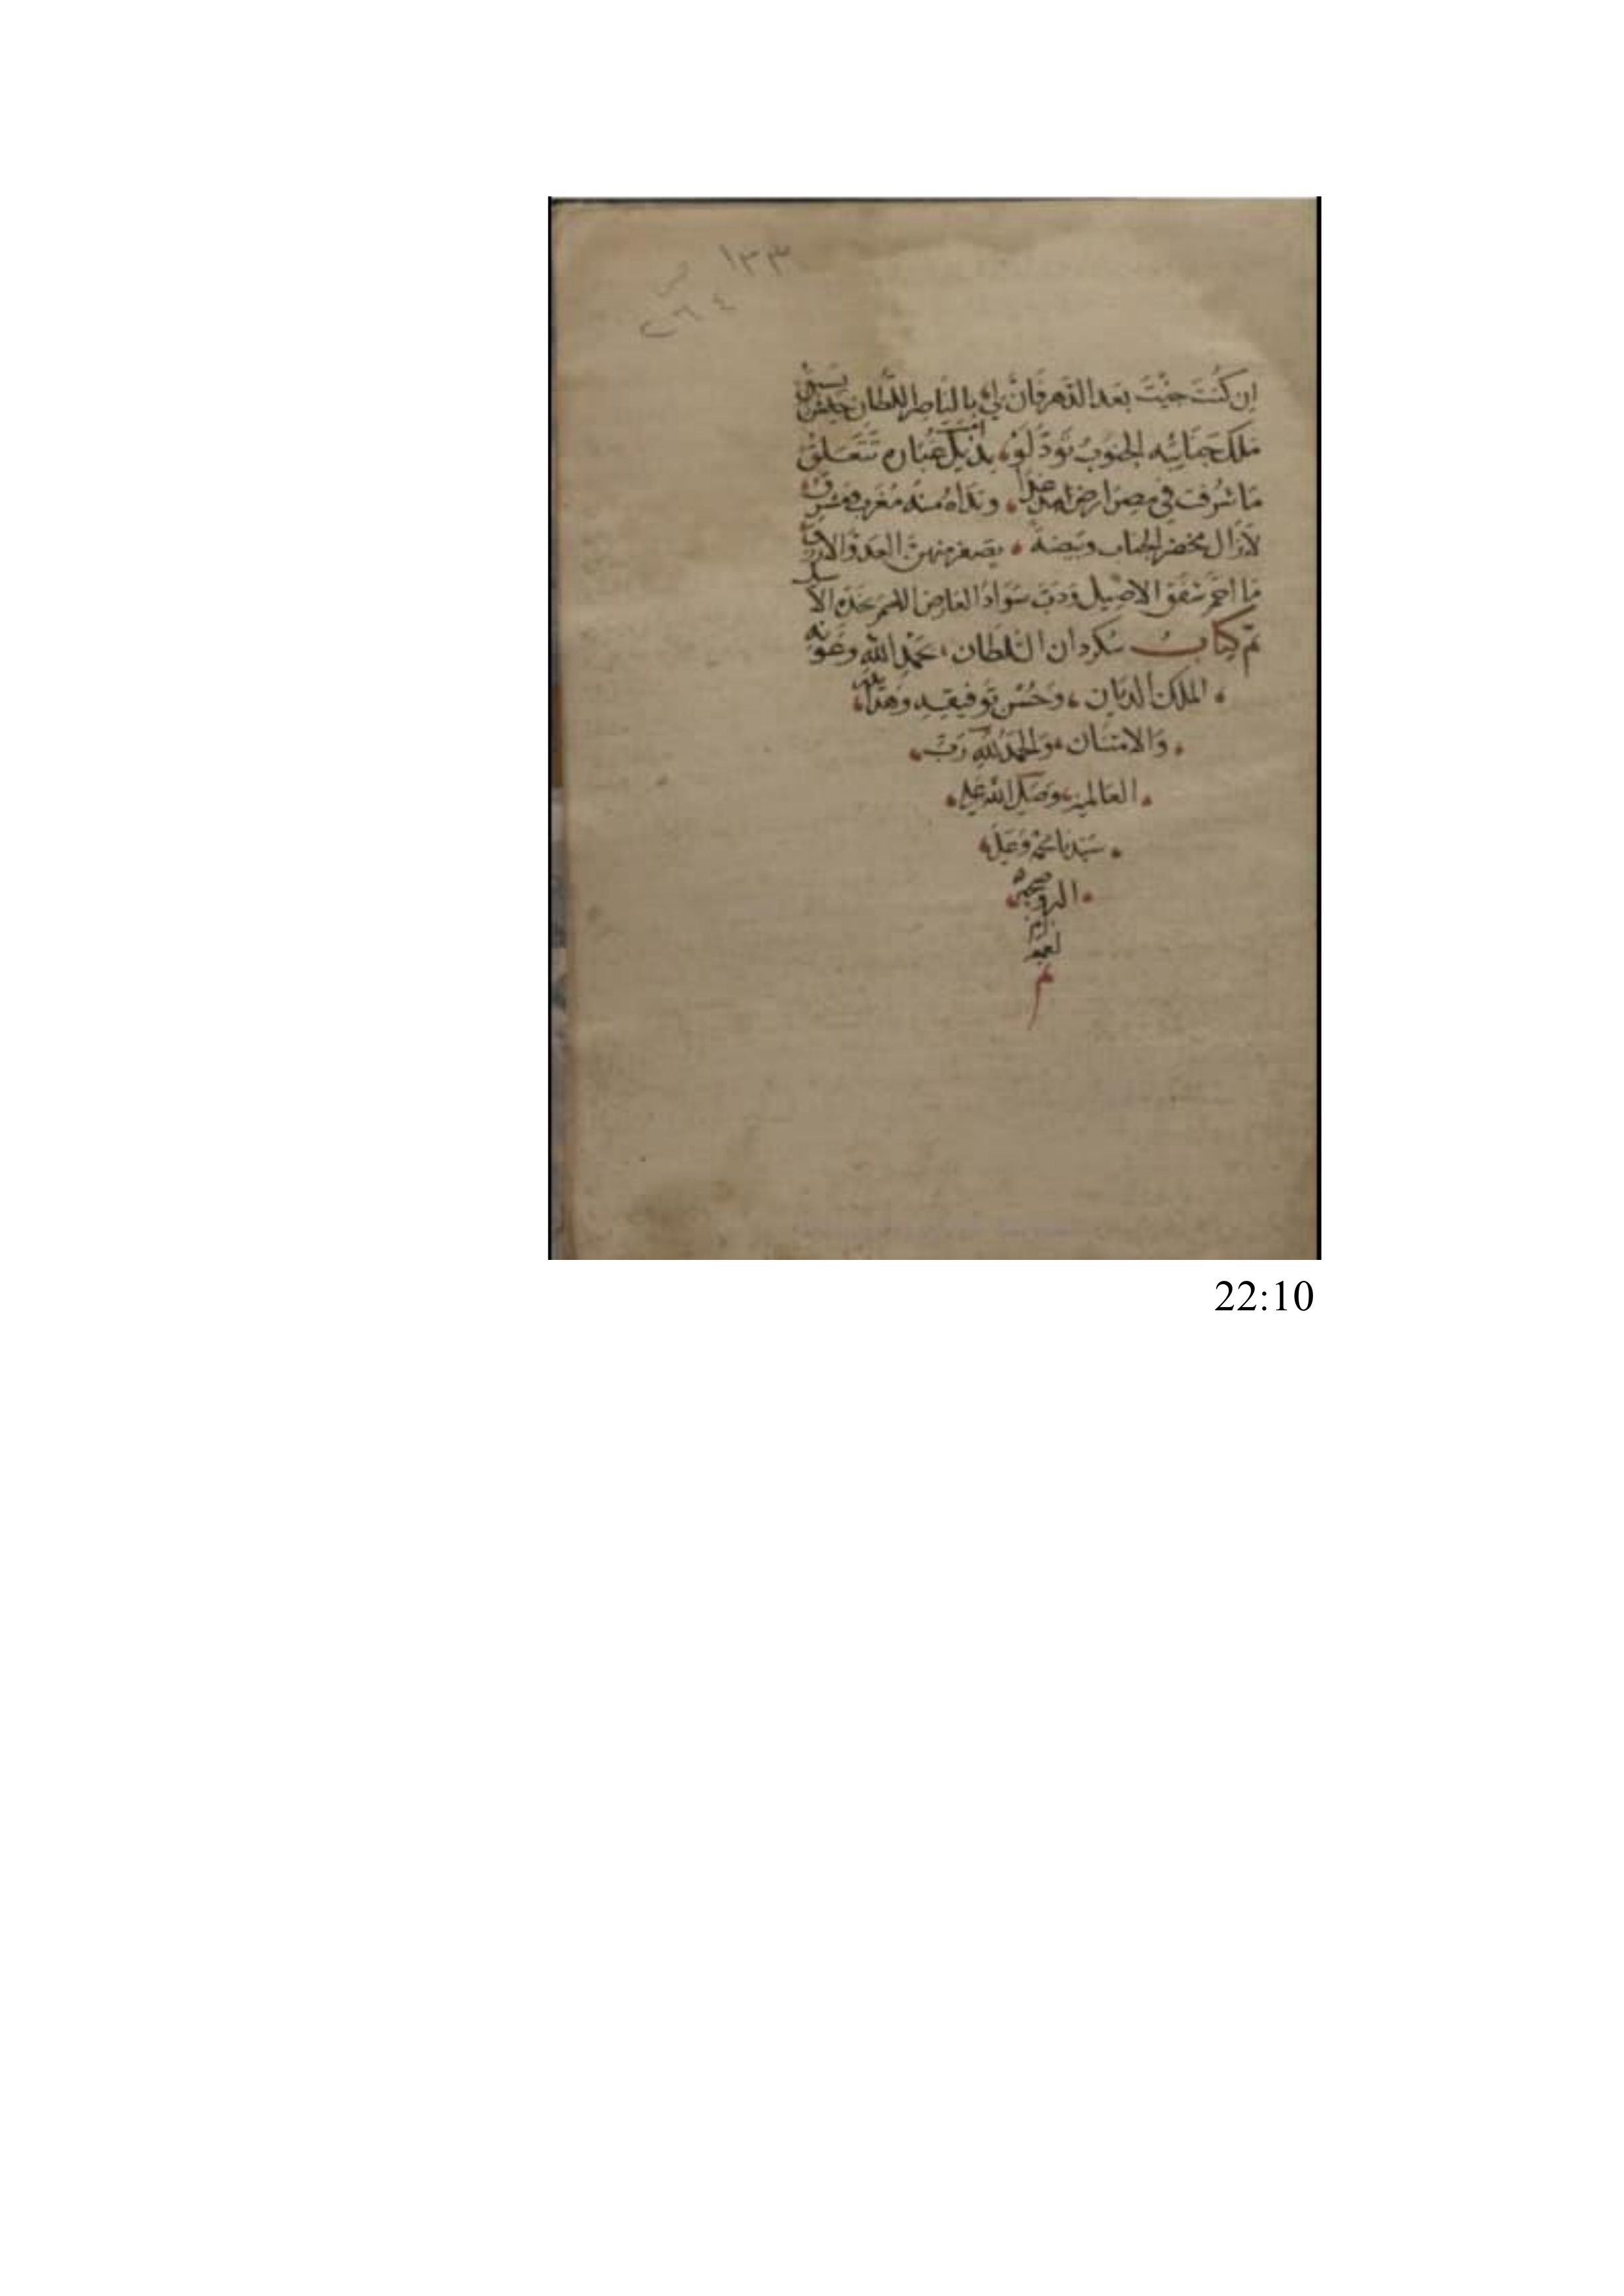 ١٣٣
ص
٢٦٤
ان كُنتَ جيْتَ بعد الدَهر فانَّ لي بالناصر السُّلطان جيش يَسبق
مَلك جنائبه الجنوبُ توَدّ لوْ امست بذيل غباره تتعَلق
مَا شرّفت في مِصرَ ارض وَنداهُ منه مُغرب ومُشرق
لازال مخضر الجناب وبيضهُ يصفر منهن العدوّ الازرق
ما احمرّ شفق الاصيل ودبّ سَوادُ العارض في خدّه الاسيل
تم كتابُ سُكردان السُّلطان بحمد الله وعَونه
الملك الديان وحُسْن توفيقه
وَالامتنان والحمدُ لله رَبّ
العَالمين وصَلى الله على
سَيّدنا محمد وعلى
اله وصحبه
م
22:10